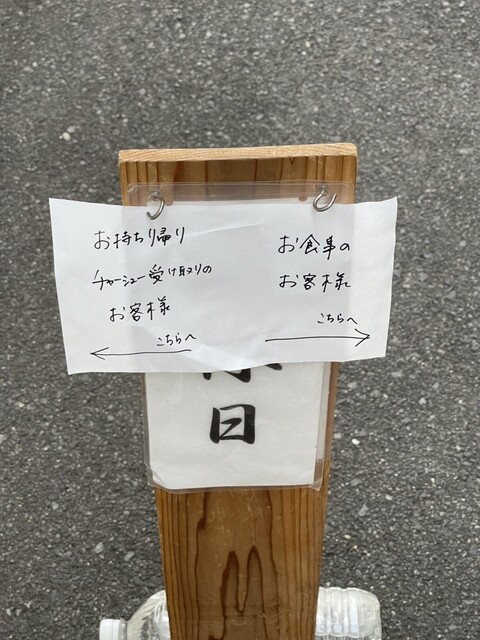 お持ち帰り
チャーシュー受け取りの
お客様
こちらへ
お食事の
お客様
こちらへ
日